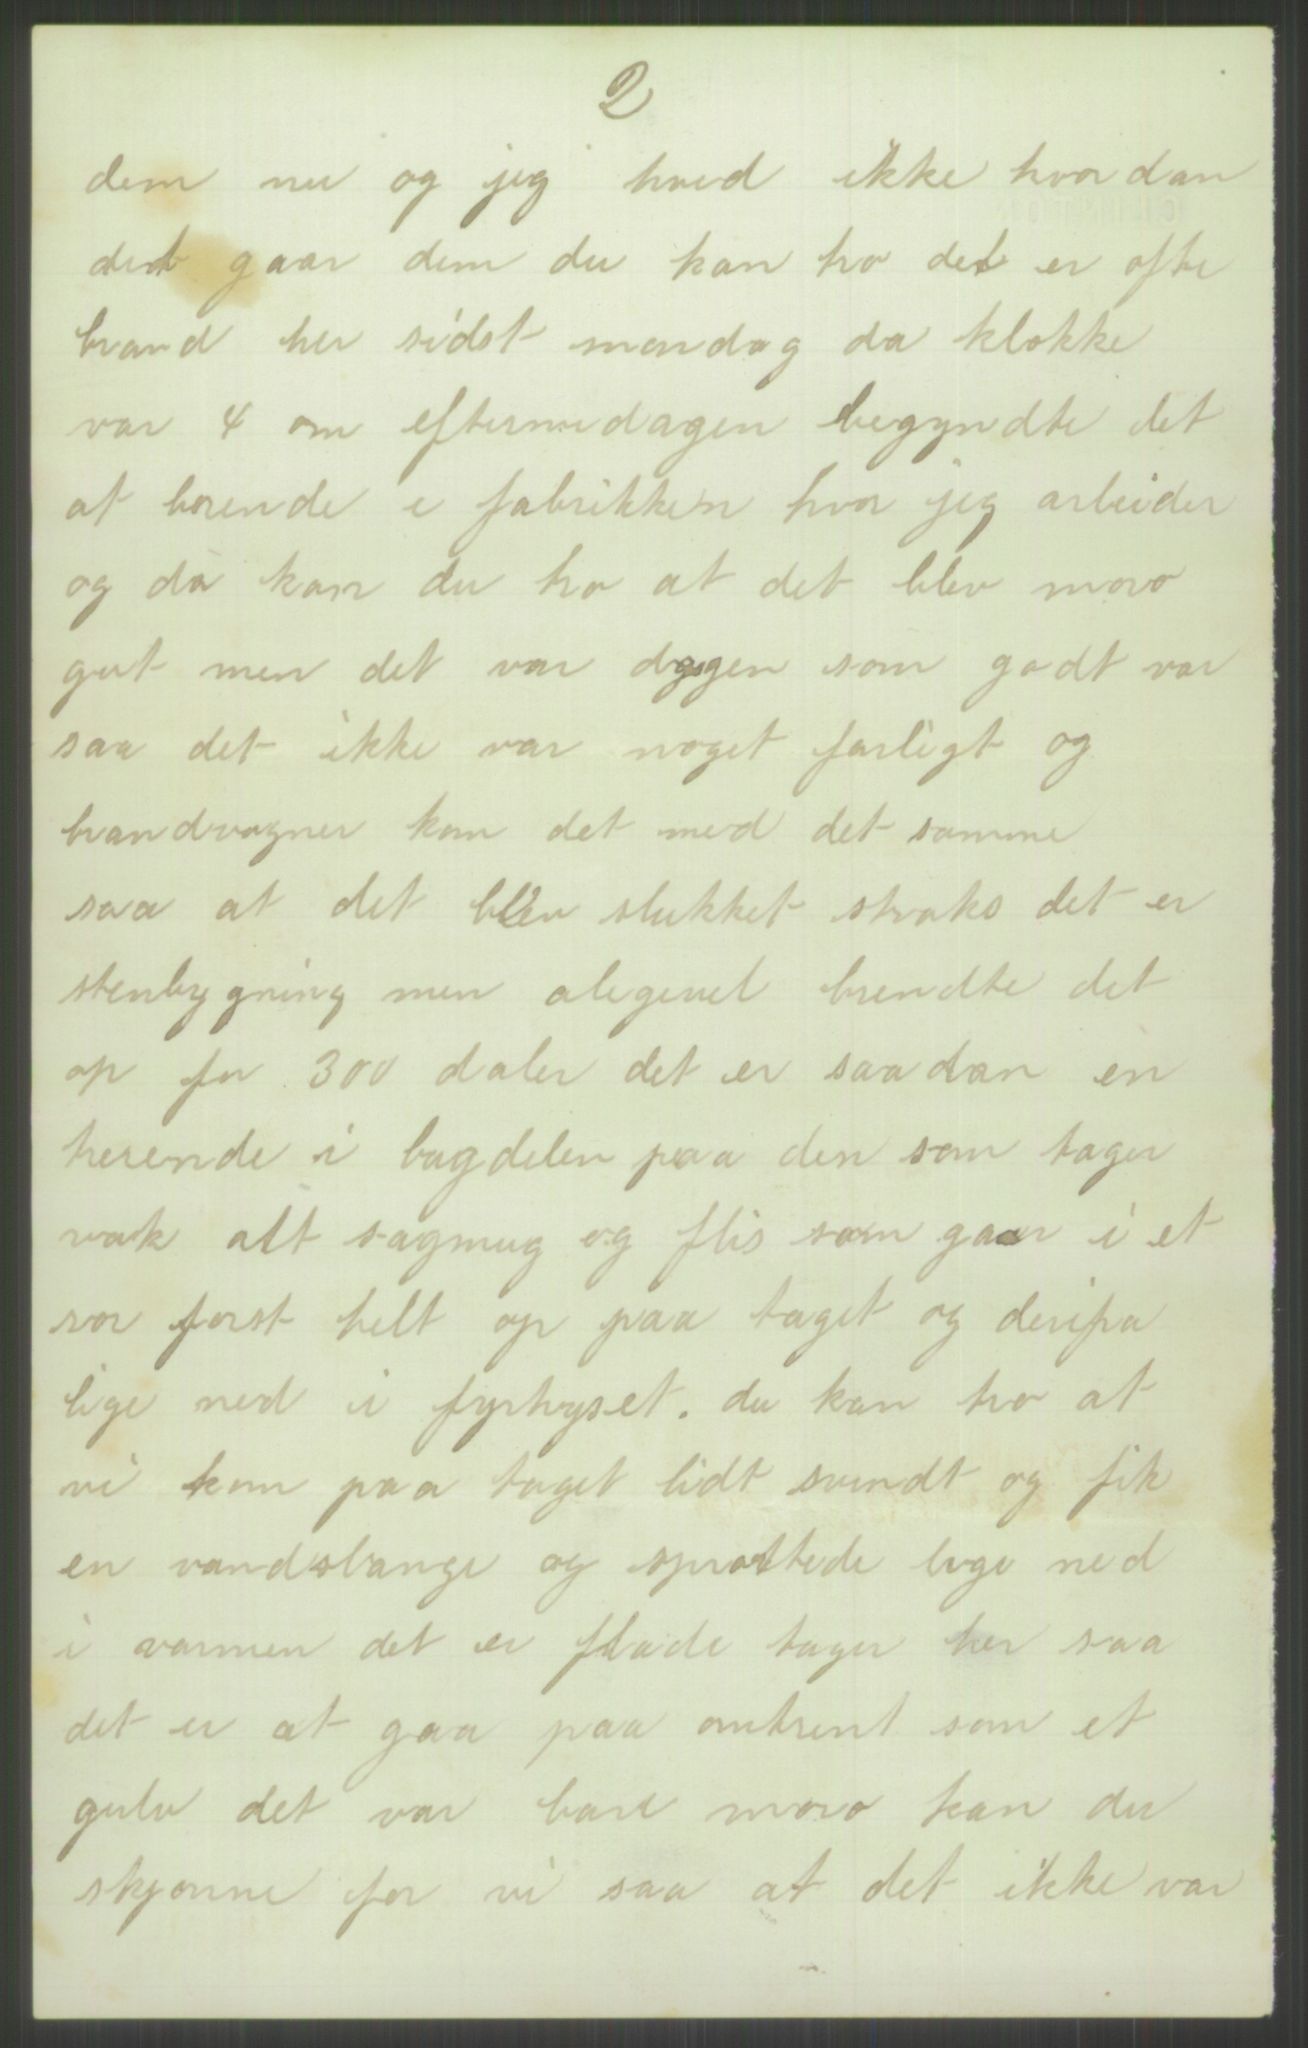 2
dem nu og jeg hved ikke hvordan
det gaar dem du kan tro det er ofte
brand her sidst mandag da klokke
var 4 om eftermedagen begyndte det
at brende i fabrikken hvor jeg arbeider
og da kan du tro at det blev moro
gut men det var dagen som godt var
saa det ikke var noget farligt og
brandvogner kom det med det samme
saa at det blev slukket straks det er
stenbygning men alegevel brendte det
op for 300 daler det er saadan en
herende i bagdelen paa den som tager
væk alt sagmug og flis som gaar i et
ror forst helt op paa taget og derifra
lige ned i fyrhyset. du kan tro at
vi kom paa taget lidt svindt og fik
en vandslange og sprøttede lige ned
i varmen det er flade tager her saa
det er at gaa paa omtrent som et
gulv det var bare moro kan du
skjonne for vi saa at det ikke var